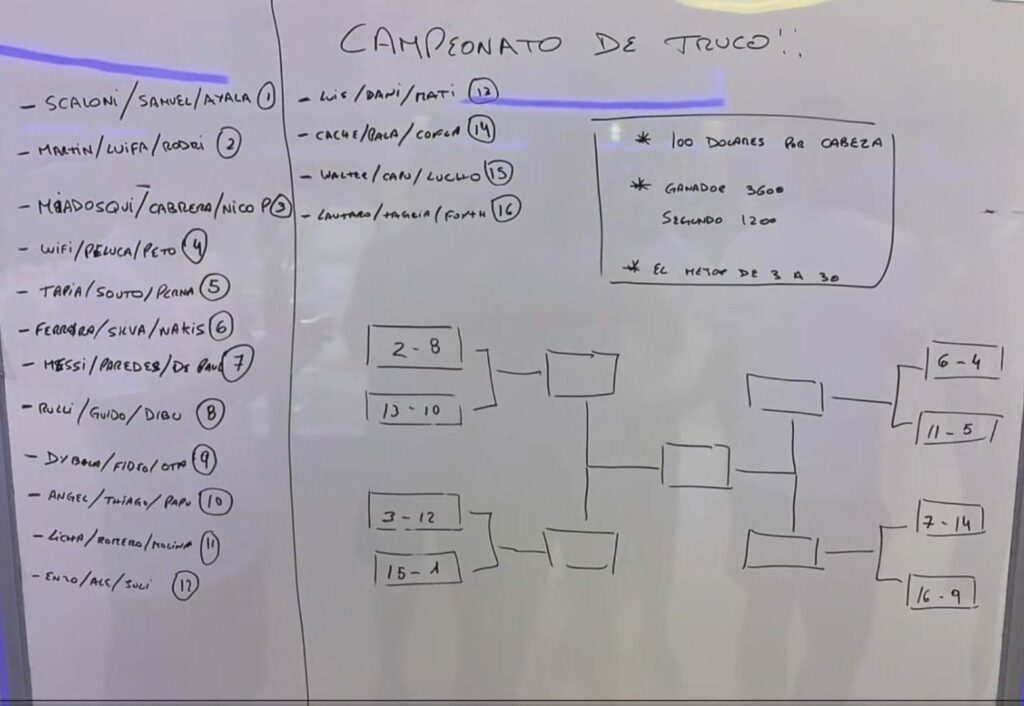 CAMPEONATO DE TRUCO!!
- SCALONI/SAMUEL/AYALA 1
- MARTIN/LUIFA/RODRI 2
- MIADOSQUI/CABRERA/NICO P 3
- WIFI/PELUCA/PETO 4
- TAPIA/SOUTO/PERNA 5
- FERREIRA/SILVA/NAKIS 6
- MESSI/PAREDES/DE PAUL 7
- RULLI/GUIDO/DIBU 8
- DYBALA/FIDEO/OTA 9
- ANGEL/THIAGO/PAPU 10
- LICHA/ROMERO/MOLINA 11
- ENZO/ALE/JULI 12
- LUIS/DANI/MATI 13
- CACHE/BALA/COFLA 14
- WALTER/CAPU/LUCHO 15
- LAUTARO/TAGLIA/FOYTH 16
* 100 DOLARES POR CABEZA
* GANADOR 3600
SEGUNDO 1200
* EL MEJOR DE 3 A 30
2 - 8
13 - 10
3 - 12
15 - 1
6 - 4
11 - 5
7 - 14
16 - 9